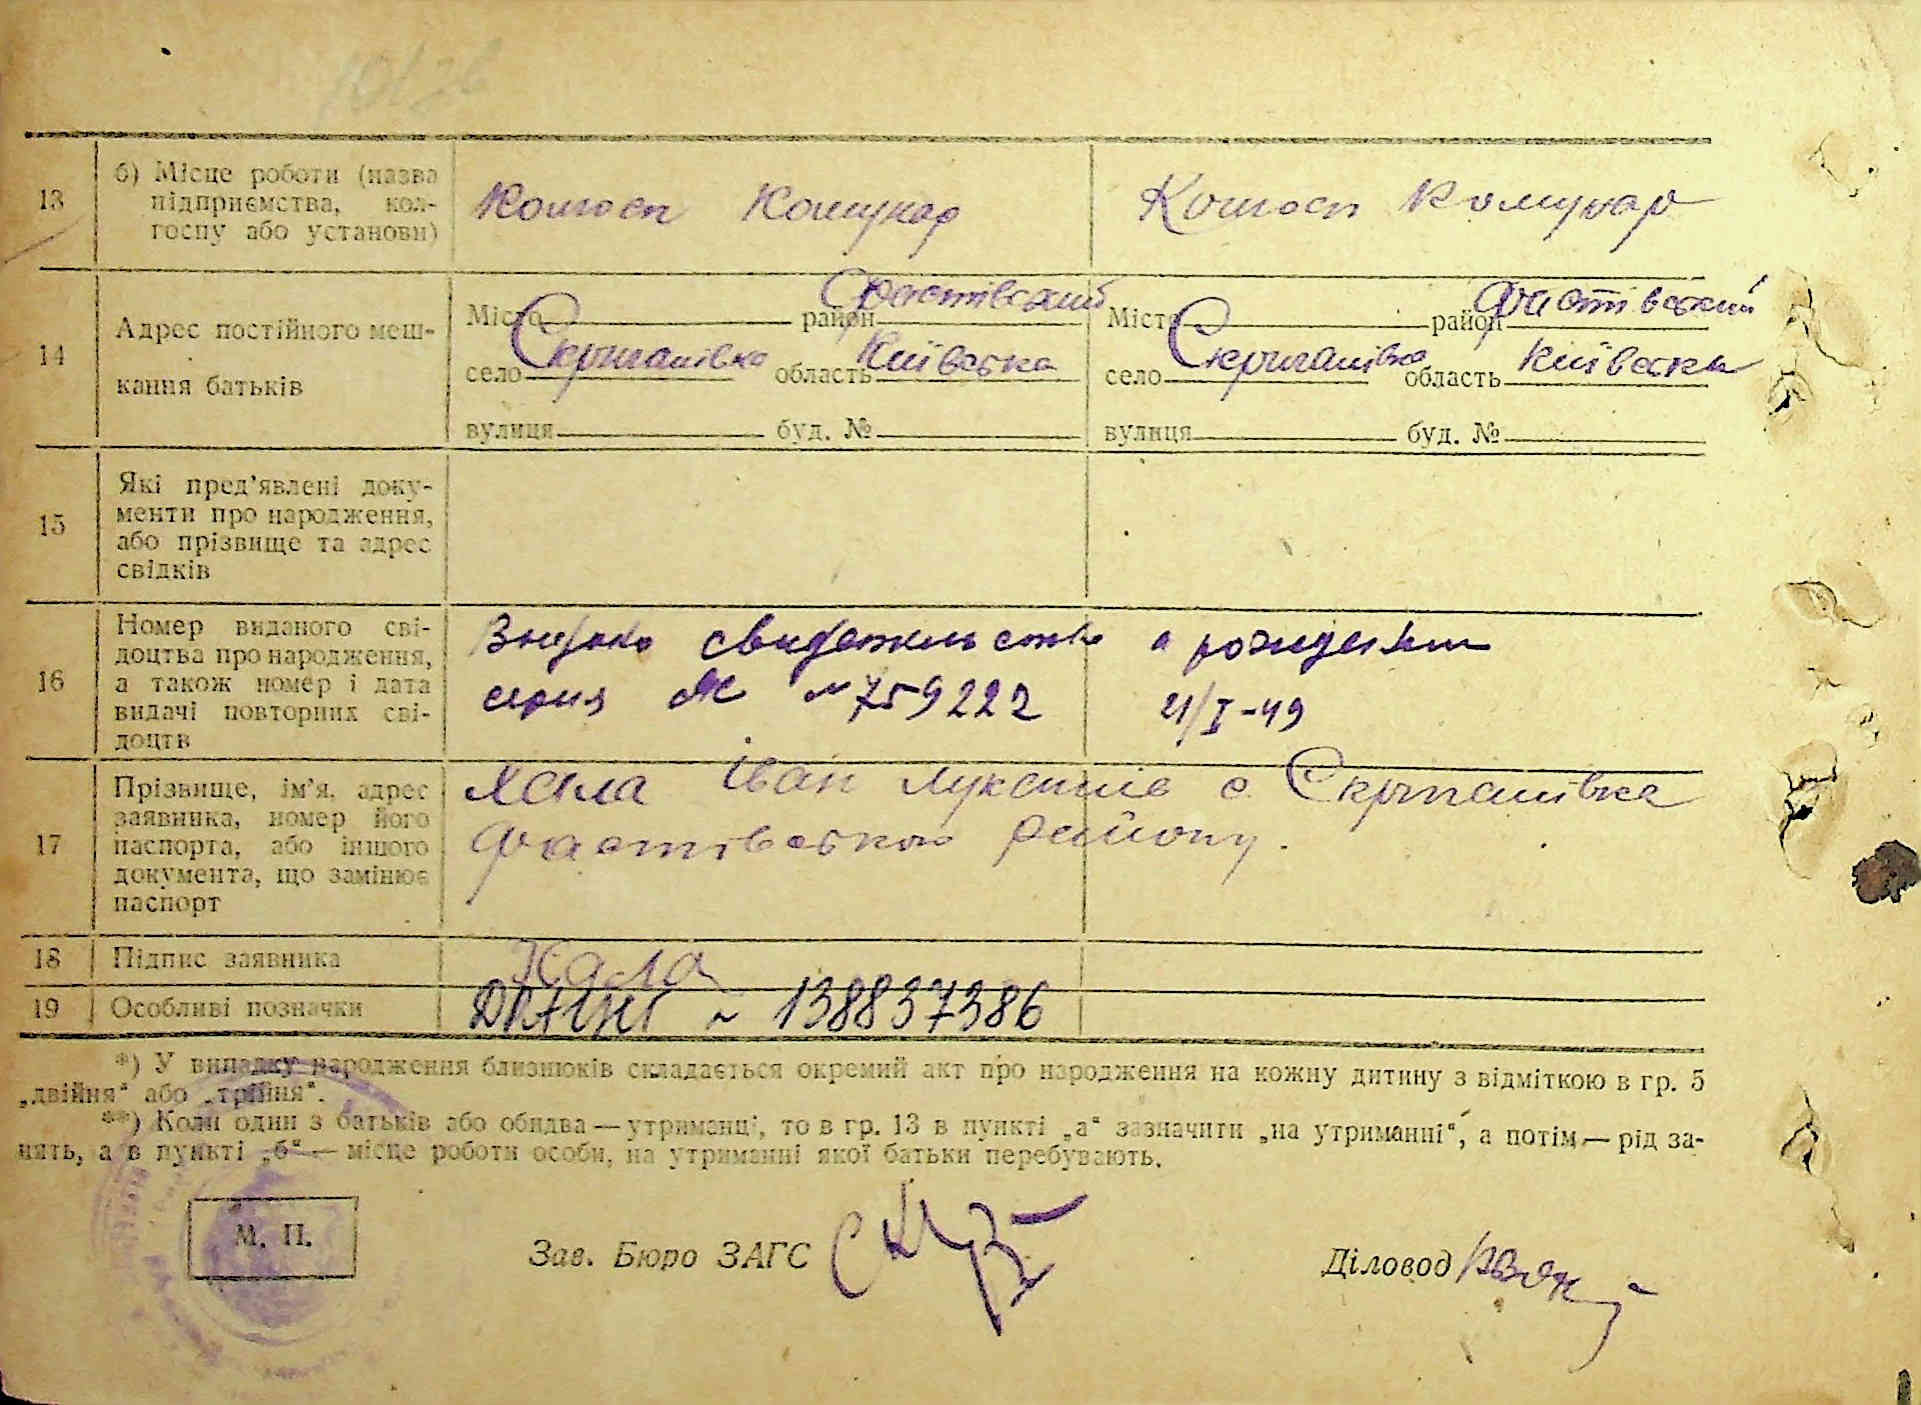 13 б) Місце роботи (назва підприємства, колгоспу або установи)
Колгосп Комунар
Колгосп Комунар
14 Адрес постійного мешкання батьків
Місто район Фастівський
село Скригалівка область Київська
вулиця буд. №
Місто район Фастівський
село Скригалівка область Київська
вулиця буд. №
15 Які пред'явлені документи про народження, або прізвище та адрес свідків
16 Номер виданого свідоцтва про народження, а також номер і дата видачі повторних свідоцтв
Выдано свидетельство о рождении
серия № 759222 21/I-49
17 Прізвище, ім'я, адрес заявника, номер його паспорта, або іншого документа, що замінює паспорт
Хала Іван с. Скригалівка
Фастівського району.
18 Підпис заявника
Хала
19 Особливі позначки
ДРАЦС ~ 138837386
*) У випадку народження близнюків складається окремий акт про народження на кожну дитину з відміткою в гр. 5
„двійня“ або „трійня“.
**) Коли один з батьків або обидва — утриманці, то в гр. 13 в пункті „а“ зазначити „на утриманні“, а потім — рід за-
нять, а в пункті „б“ — місце роботи особи, на утриманні якої батьки перебувають.
М. П.
Зав. Бюро ЗАГС
Діловод